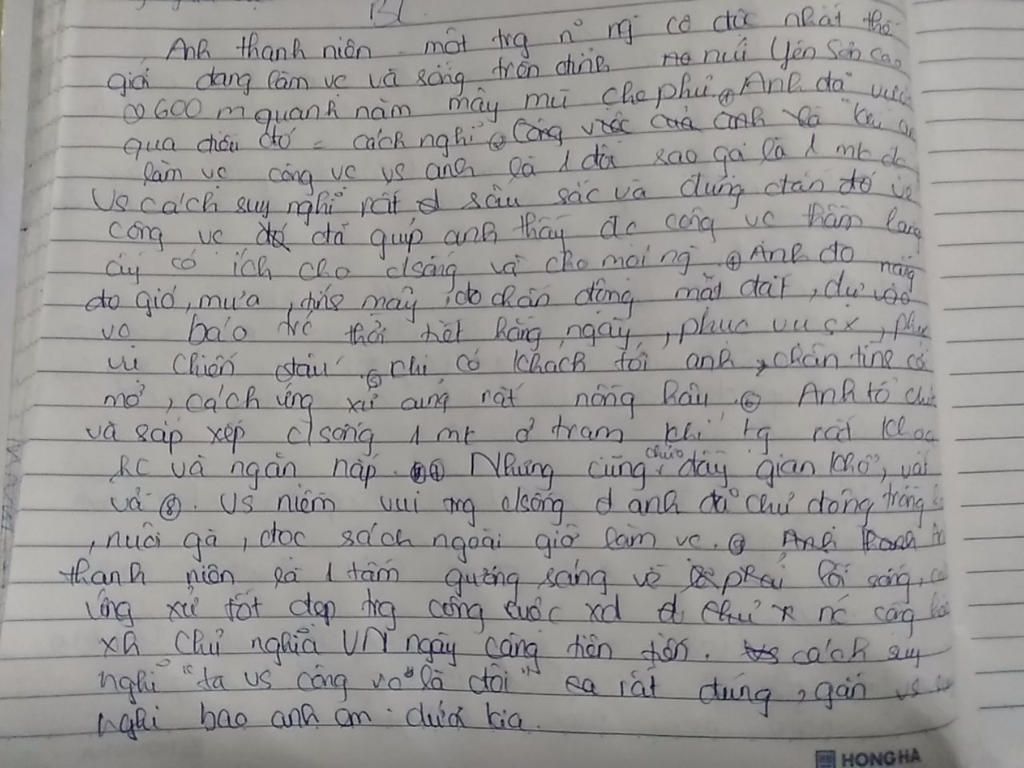 Bl
Anh thanh niên một trg n~ ng cô độc nhất thế
giới đang làm vc và sống trên đỉnh núi Yên Sơn cao
2600 m quanh năm mây mù che phủ Anh đã vượt
qua điều đó = cách nghĩ Công việc của anh là "khi ta
làm vc công vc vs anh là 1 đôi sao gọi là 1 mk đc
Vs cách suy nghĩ rất sâu sắc và đúng đắn đó về
công vc đã giúp anh thấy đc công vc thầm lặng
ấy có ích cho c/sống và cho mọi ng Anh đo nắng
đo gió, mưa, tính mây, đo chấn động mặt đất, dự vào
vc báo trc thời tiết hằng ngày, phục vụ sx, phục
vụ chiến đấu. khi có khách tới anh, chân tình cởi
mở, cách ứng xử cũng rất nồng hậu. Anh tổ chức
và sắp xếp c/sống 1 mk ở trạm khí tg rất khoa
hc và ngăn nắp. Nhưng cũng chứa đầy gian khổ, vất
vả. Vs niềm vui trg c/sống anh đã chủ động trồng
, nuôi gà, đọc sách ngoài giờ làm vc. Anh
thanh niên là 1 tấm gương sáng về lối sống,
ứng xử tốt đẹp trg công cuộc xd nc cộng hòa
xh chủ nghĩa VN ngày càng tiến tiến. cách suy
nghĩ "ta vs công vc là đôi" ra rất đúng, gắn vs
nghĩ bao anh em dưới kia.
HONG HA